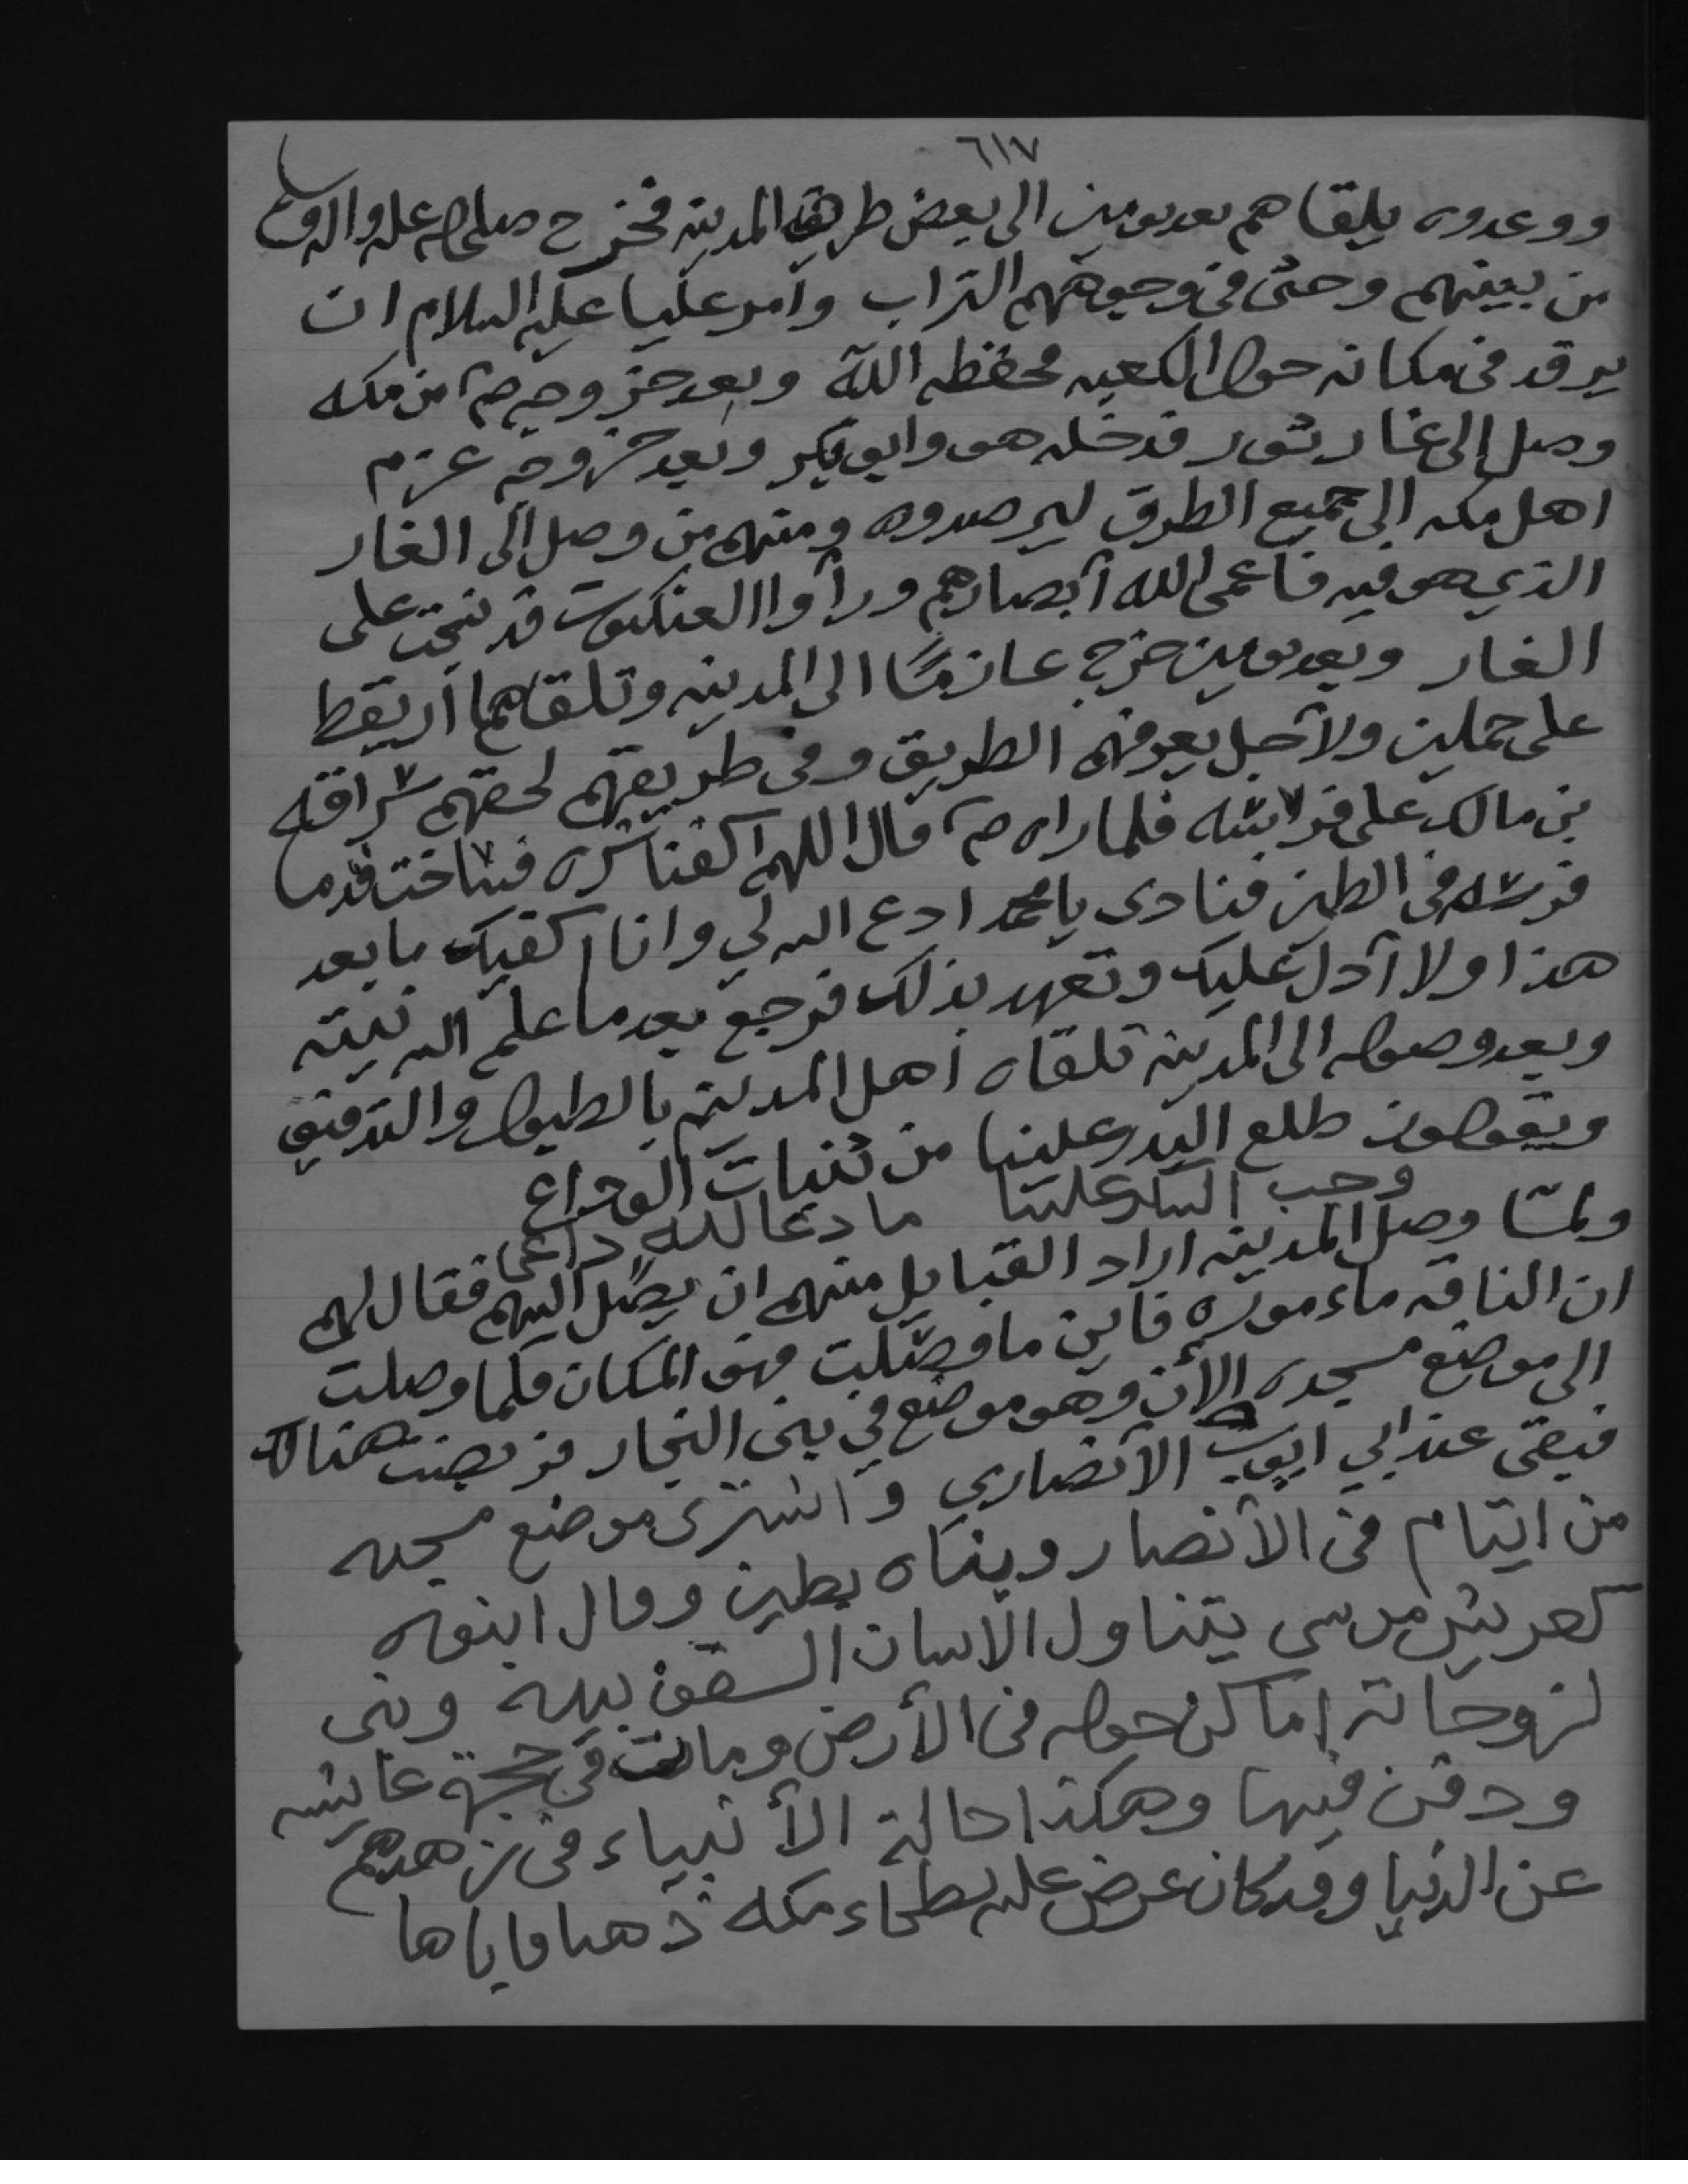 ٦١٧
ووعدوه يلقاهم بعد يومين الى بعض طريق المدينه فخرج صلى الله عليه واله وسلم
من بينهم وحثى في وجوههم التراب وأمر عليا عليه السلام ان
يرقد في مكانه حول الكعبه فحفظه الله وبعد خروجه صم من مكه
وصل الى غار ثور فدخله هو وابو بكر وبعد خروجه عزم
اهل مكه الى جميع الطرق ليرصدوه ومنهم من وصل الى الغار
الذي هو فيه فاعمى الله أبصارهم ورأوا العنكبوت قد نسجت على
الغار وبعد يومين خرج عازمًا الى المدينه وتلقاهما أريقط
على جملين ولأجل يعرفهم الطريق وفي طريقهم لحقهم سراقه
بن مالك على فرسه فلما راه صم قال اللهم اكفنا شره فساخت قدما
فرسه في الطين فنادى يا محمد ادع الله لي وانا اكفيك ما بعد
هذا ولا أدل عليك وتعهد بذلك فرجع بعدما علم الله نيته
وبعد وصوله الى المدينه تلقاه أهل المدينه بالطبول والتدفيف
ويقولون طلع البدر علينا من ثنيات الوداع
وجب الشكر علينا ما دعا لله داعى
ولمّا وصل المدينه اراد القبايل منهم ان يصل اليهم فقال لهم
ان الناقه ماءموره فأين ما وصلت فهو المكان فلما وصلت
الى موضع مسجده الأن وهو موضع في بنى النجار فربضت هناك
فبقى عند ابي ايوب الأنصاري واشترى موضع مسجده
من ايتام في الأنصار وبناه بطين وقال ابنوه
كعريش موسى يتناول الانسان السقف بيده وبنى
لزوجاته اماكن حوله في الأرض ومات في حجرة عايشه
ودفن فيها وهكذا حالة الأنبياء في زهدهم
عن الدنيا وقد كان عرض عليه بطحاء مكه ذهبا فاباها